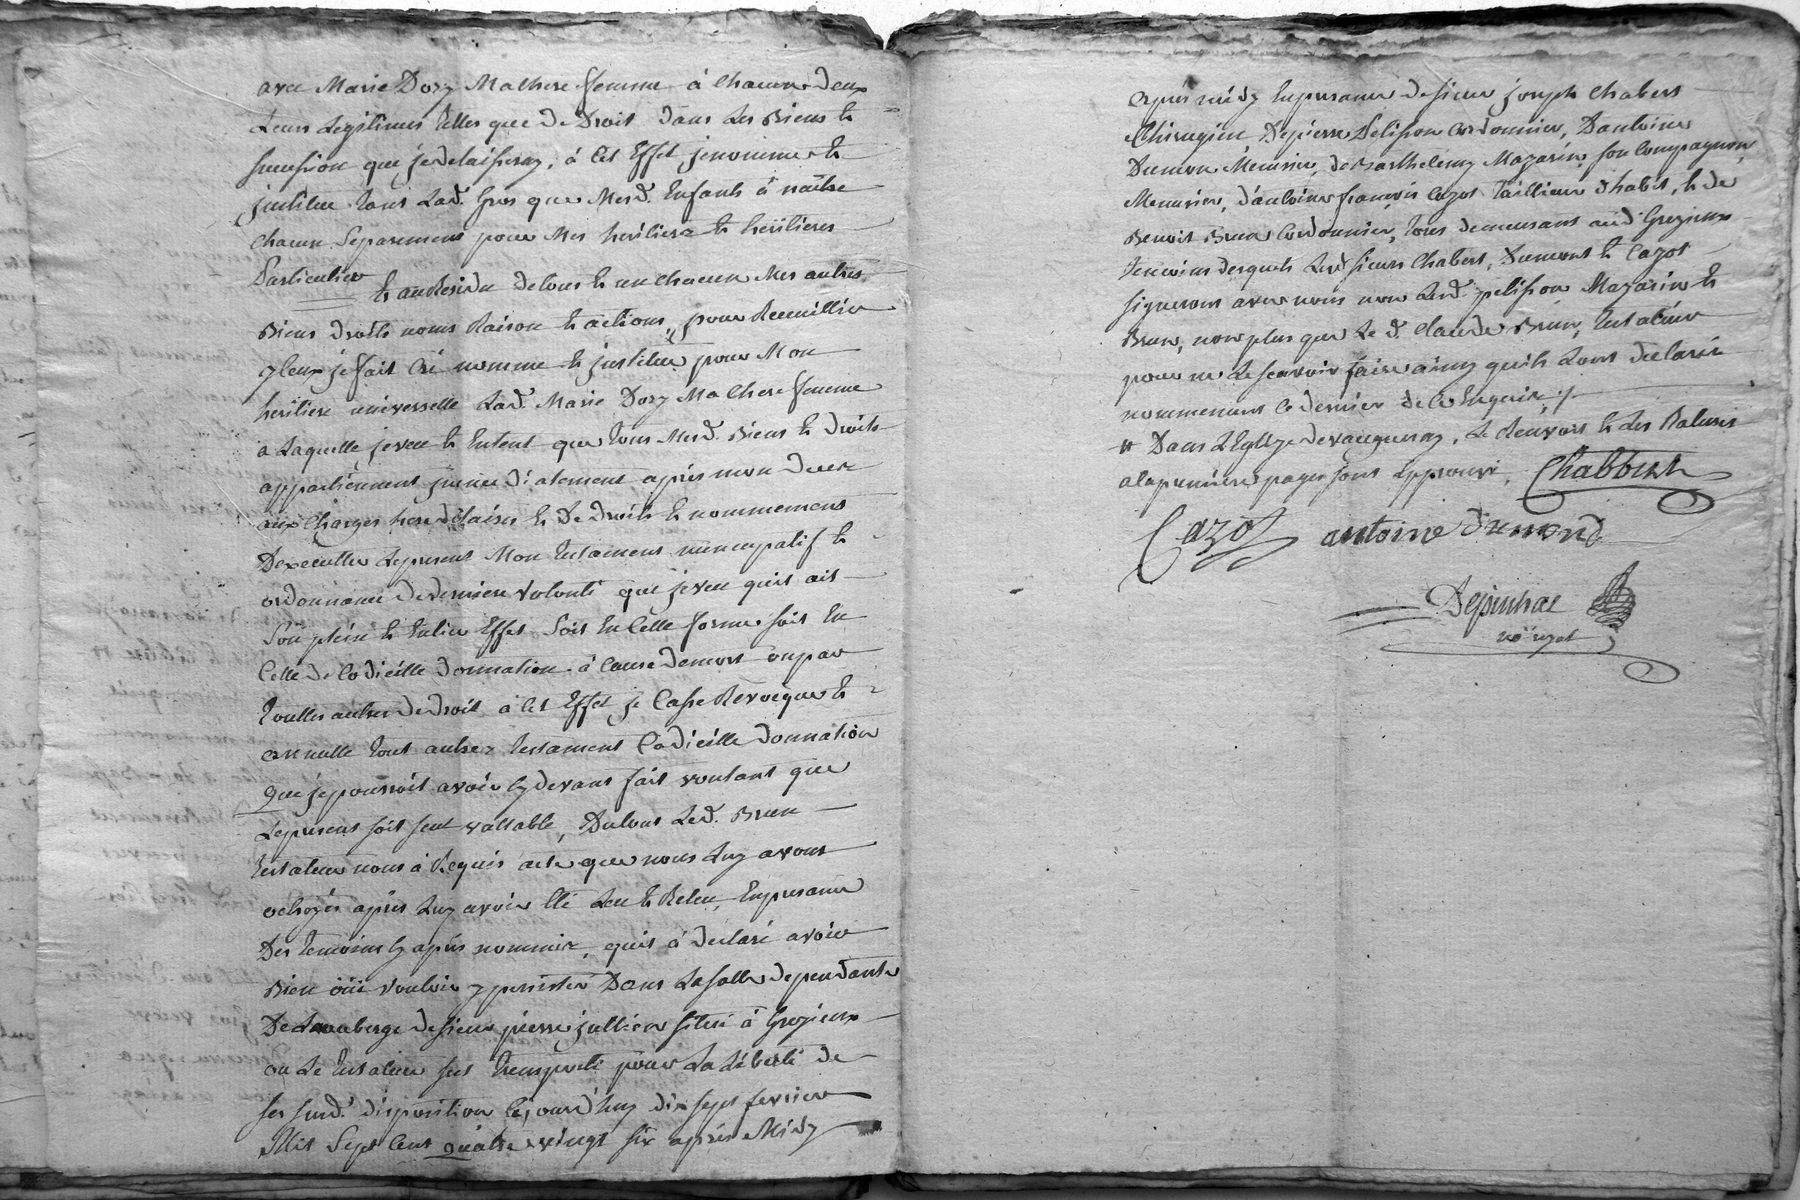 avec Marie Dory Ma Chere femme à chacun deux
Leurs Legitimes telles que de Droit dans Les Biens et
succession que je delaisseray, à Cet Effet je nomme et
jnstitue tant Lad. Gros que Mesd. Enfants à naître
chacun Separement pour Mes heritiers et heritieres
Particuliers
Et au Residu de tous et un chacun Mes autres
Biens droits noms Raison et actions, pour Recueillir
yceux je fait Cré nomme et jnstitue pour Mon
heritiere universelle Lad. Marie Dory Ma Chere femme
a Laquelle je veu et Entent que tous Mesd. Biens et droits
appartiennent jmmediatement après mon decez
aux Charges heredittaires et de droits et nommement
D'executter Le present Mon testament nuncupatif et
ordonnance de derniere volonté que je veu qu'il ait
Son plein et Entier Effet Soit En Cette forme soit En
Celle de Codicille donnation à Cause de mort ou par
toutes autres de droit à Cet Effet je Casse Revoque et
annulle tout autre testament Codicille donnation
que je pourroit avoir Cy devant fait voulant que
Le present soit seul vallable, Du tout Led. Brun
testateur nous à Requis acte que nous Luy avons
octroyés après Luy avoir Eté Leu et Releu, En presance
Des temoins Cy après nommés, qu'il à declaré avoir
Bien oüi vouloir y persister Dans La salle dependante
De Lauberge de sieur pierre jullien situé à Grezieux
ou Le testateur sest transporté pour La Liberté de
ses susd. disposition Cejourd'huy dix sept fevrier
Mil Sept Cent quatre vingt six après Midy
après midy En presance de sieur joseph Chabert
Chirugien, De pierre Pelisson Cordonnier, D'antoine
Dumon Menuisier, de Barthelemy Mazarin son Compagnon
Menuisier, d'antoine françois Cazot Tailleur d'habit, et de
Benoit Brun Cordonnier, tous demeurant aud. Grezieux
temoins desquels Lesd. sieurs Chabert, Dumont et Cazot
signeront avec nous non Lesd. pelisson Mazarin et
Brun, non plus que Le d. Claude Brun, testateur
pour ne Le sçavoir faire ainsy qu'ils Lont declaré
nommement Ce dernier de ce Enquis ./.
# Dans L'Eglise de vaugneray, Le Renvois et Les Ratures
a la premiere pages sont approuvé, Chabbert
Cazot antoine dumond
Depinhac
no.re royal